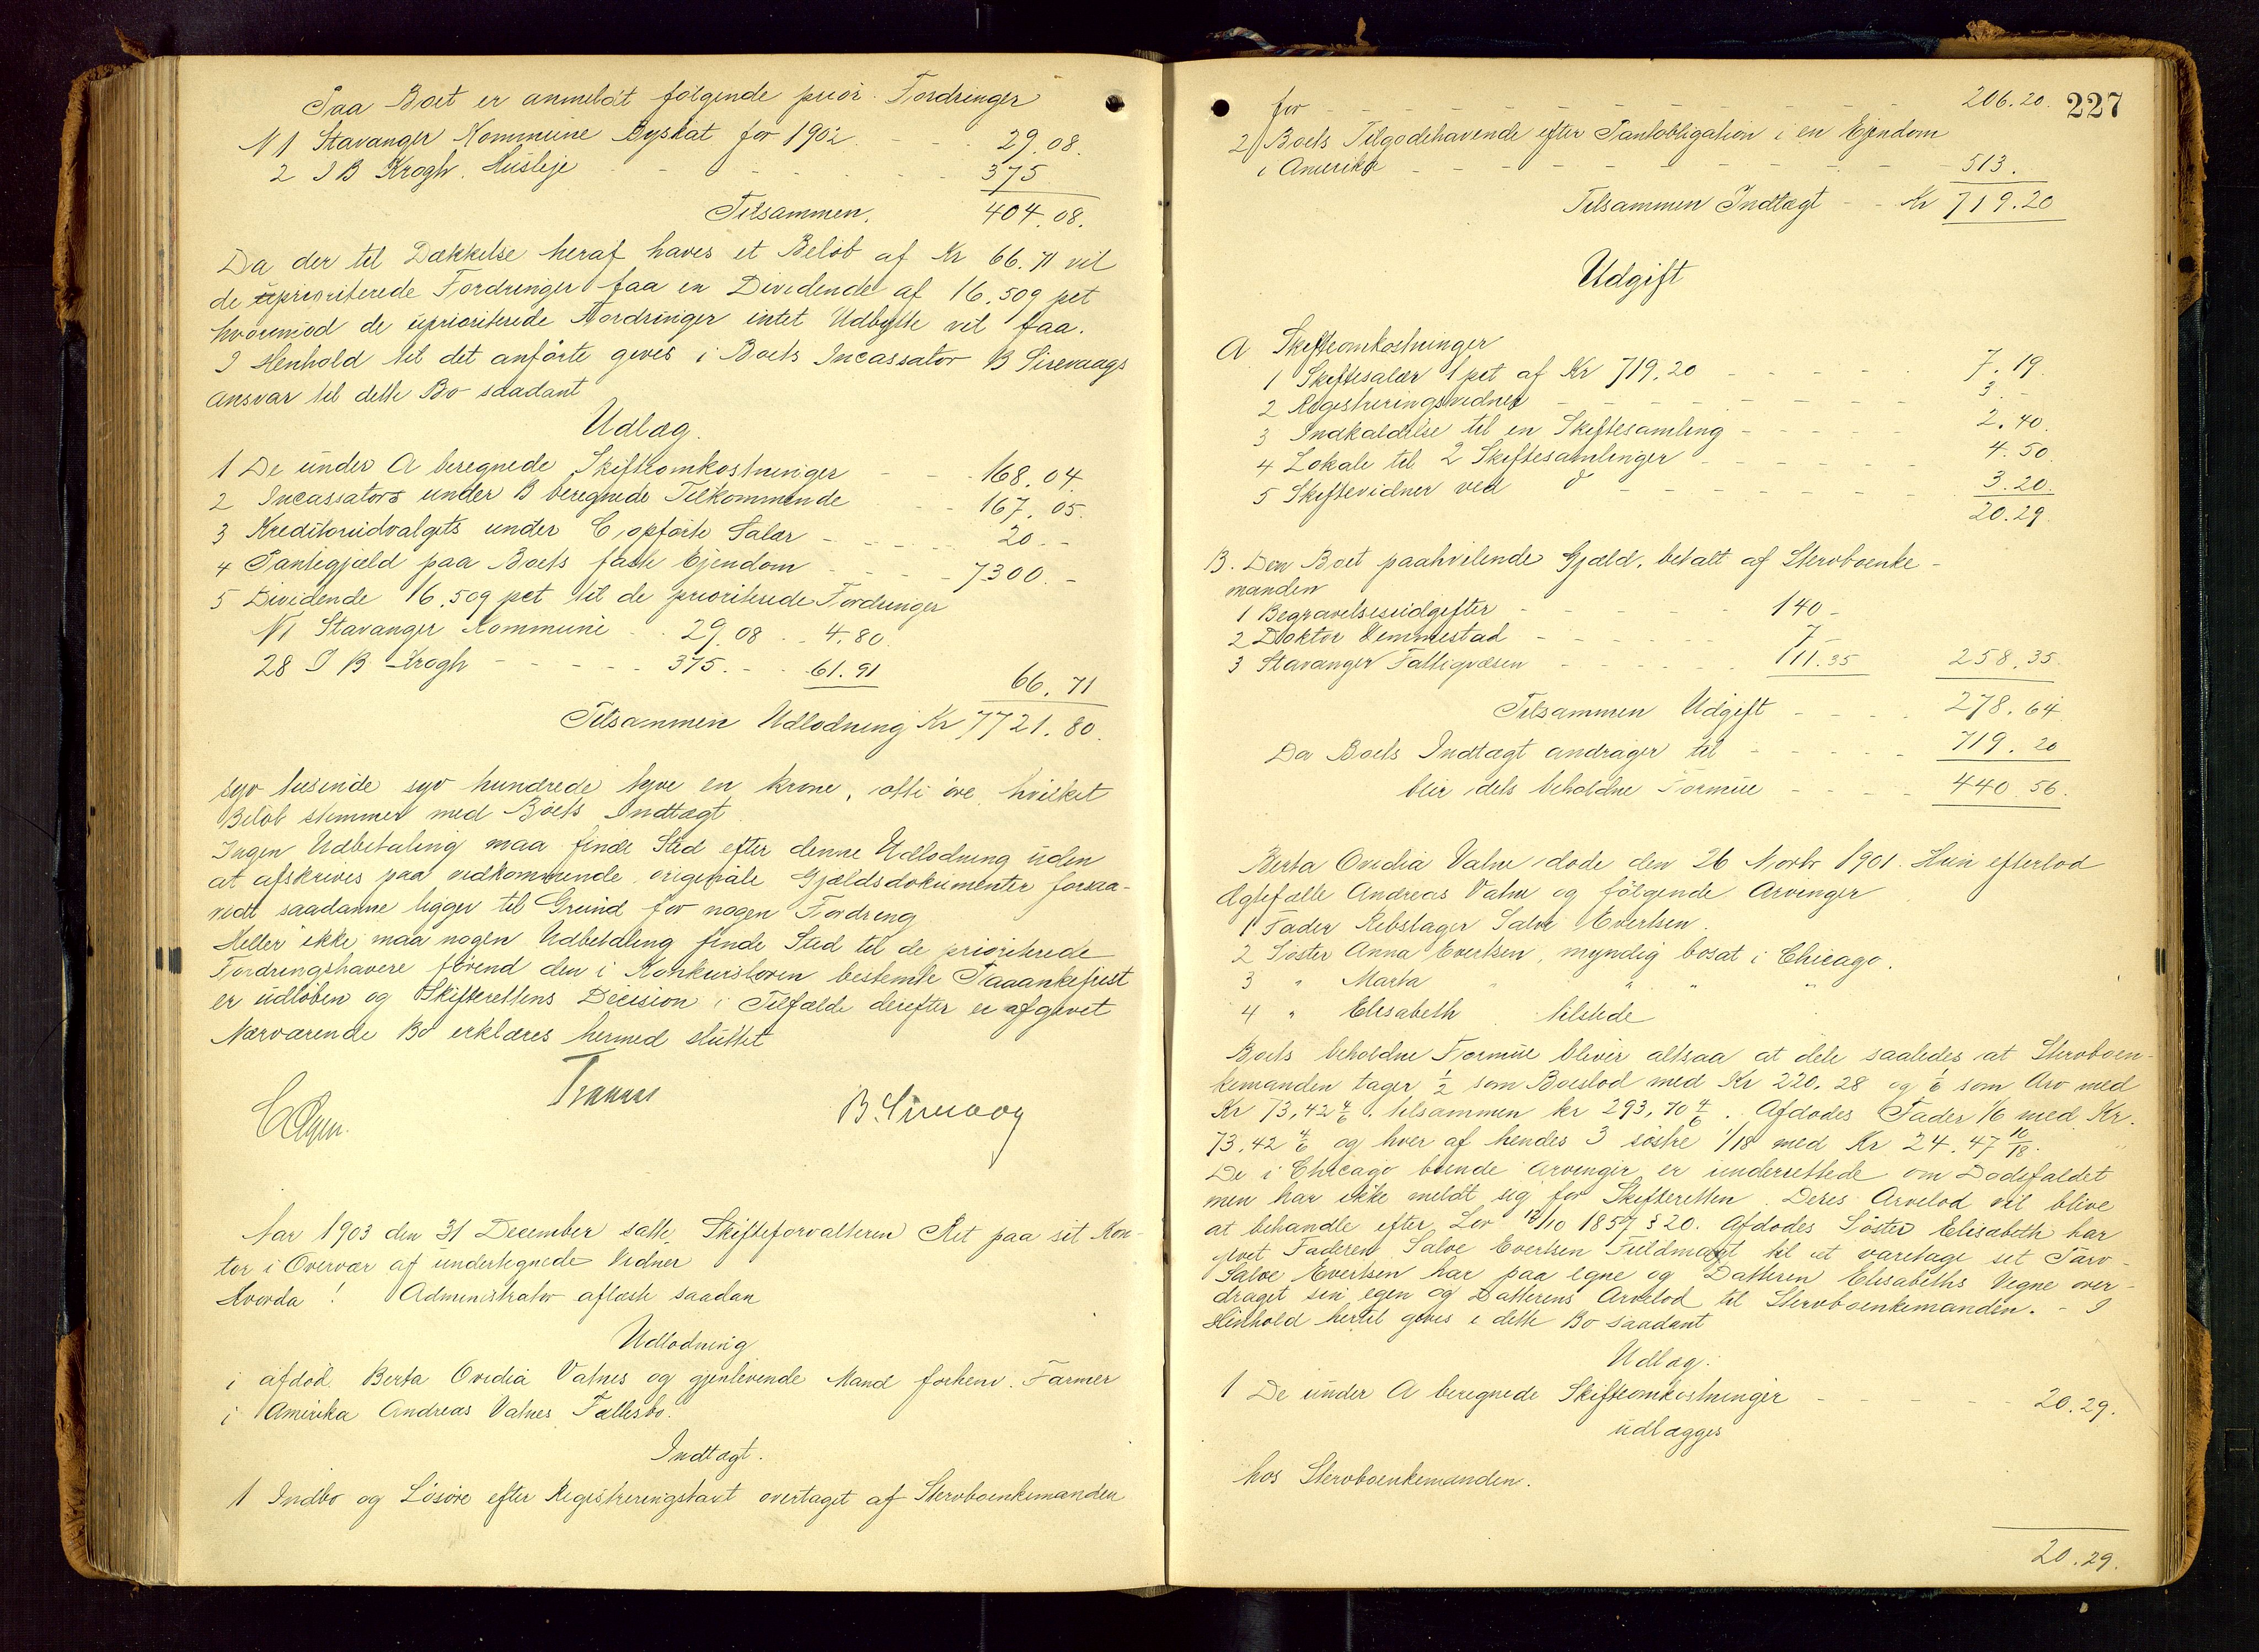 Paa Boet er anmeldt følgende prior. Fordringer
N 1 Stavanger Kommune Byskat for 1902 - - - 29.08.
2 I B Krogh. Husleje - - - - - - 375
Tilsammen. 404.08.
Da der til Dækkelse heraf haves et Beløb af Kr 66.71 vil
de prioriterede Fordringer faa en Dividende af 16.509 pct
hvorimod de uprioriterede Fordringer intet Udbytte vil faa.
I Henhold til det anførte gives i Boets Incassator B Sirevaags
ansvar til dette Bo saadant
Udlæg.
1 De under A beregnede Skifteomkostninger - - 168.04.
2 Incassators under B beregnede Tilkommende - - 167.05.
3 Kreditorudvalgets under C opførte Salær - - - - 20.-
4 Pantegjæld paa Boets faste Ejendom - - - - 7300.-
5 Dividende 16.509 pct til de prioriterede Fordringer
N 1 Stavanger Kommune - - 29.08 - - 4.80.
28 I B Krogh - - - - - 375. - - 61.91
66.71
Tilsammen Udlodning Kr 7721.80.
syv tusinde syv hundrede tyve en krone, otti øre, hvilket
Beløb stemmer med Boets Indtægt.
Ingen Udbetaling maa finde Sted efter denne Udlodning uden
at afskrives paa vedkommende originale Gjældsdokumenter forsaa-
vidt saadanne ligger til Grund for nogen Fordring
Heller ikke maa nogen Udbetaling finde Sted til de prioriterede
Fordringshavere førend den i Konkursloven bestemte Paaankefrist
er udløben og Skifterettens Decision i Tilfælde derefter er afgivet
Nærværende Bo erklæres hermed sluttet
B. Sirevaag
Aar 1903 den 31 December satte Skifteforvalteren Ret paa sit Kon-
tor i Overvær af undertegnede Vidner
Hvorda! Administrator aflæste saadan
Udlodning
i afdød. Berta Ovidia Vatnes og gjenlevende Mand forhenv. Farmer
i Amerika Andreas Vatnes Fællesbo.
Indtægt.
1 Indbo og Løsøre efter Registreringstaxt overtaget af Stervboenkemanden
227
for - - - - - - - - - - 206.20.
2) Boets Tilgodehavende efter Pantobligation i en Ejendom
i Amerika - - - - - - - - - 513.
Tilsammen Indtægt - - Kr 719.20
Udgift
A Skifteomkostninger
1 Skiftesalær 1 pct af Kr 719.20 - - - - - 7.19.
2 Registreringsvidner - - - - - - - 3.-
3 Indkaldelse til en Skiftesamling - - - - - 2.40.
4 Lokale til 2 Skiftesamlinger - - - - - - 4.50.
5 Skiftevidner ved do - - - - - - - 3.20.
20.29.
B. Den Boet paahvilende Gjæld, betalt af Stervboenke-
manden
1 Begravelsesudgifter - - - - - 140 -
2 Doktor Vemmestad - - - - - 7 -
3 Stavanger Fattigvæsen - - - - - 111.35 258.35.
Tilsammen Udgift - - - - 278.64
Da Boets Indtægt andrager til - - - - - 719.20
blir dets beholdne Formue - - - - 440.56.
Berta Ovidia Vatne døde den 26 Novbr 1901. Hun efterlod
Ægtefælle Andreas Vatne og følgende Arvinger
1 Fader Rebslager Salve Evertsen.
2 Søster Anna Evertsen, myndig bosat i Chicago.
3 " Marta " " " "
4 " Elisabeth tilstede
Boets beholdne Formue bliver altsaa at dele saaledes at Stervboen-
kemanden tager 1/2 som Boeslod med Kr 220.28 og 1/6 som Arv med
Kr 73,42 4/6. tilsammen kr 293,70 4/6. Afdødes Fader 1/6 med Kr.
73.42 4/6 og hver af hendes 3 søstre 1/18 med Kr 24.47 10/18.
De i Chicago boende Arvinger er underrettede om Dødsfaldet
men har ikke meldt sig for Skifteretten. Deres Arvelod vil blive
at behandle efter Lov 12/10 1857 § 20. Afdødes Søster Elisabeth har
givet Faderen Salve Evertsen Fuldmagt til at varetage sit Tarv.
Salve Evertsen har paa egne og Datteren Elisabeths Vegne over-
draget sin egen og Datterens Arvelod til Stervboenkemanden. - I
Henhold hertil gives i dette Bo saadant
Udlæg:
1 De under A beregnede Skifteomkostninger - - - - - 20.29.
udlægges
hos Stervboenkemanden.
20.29.